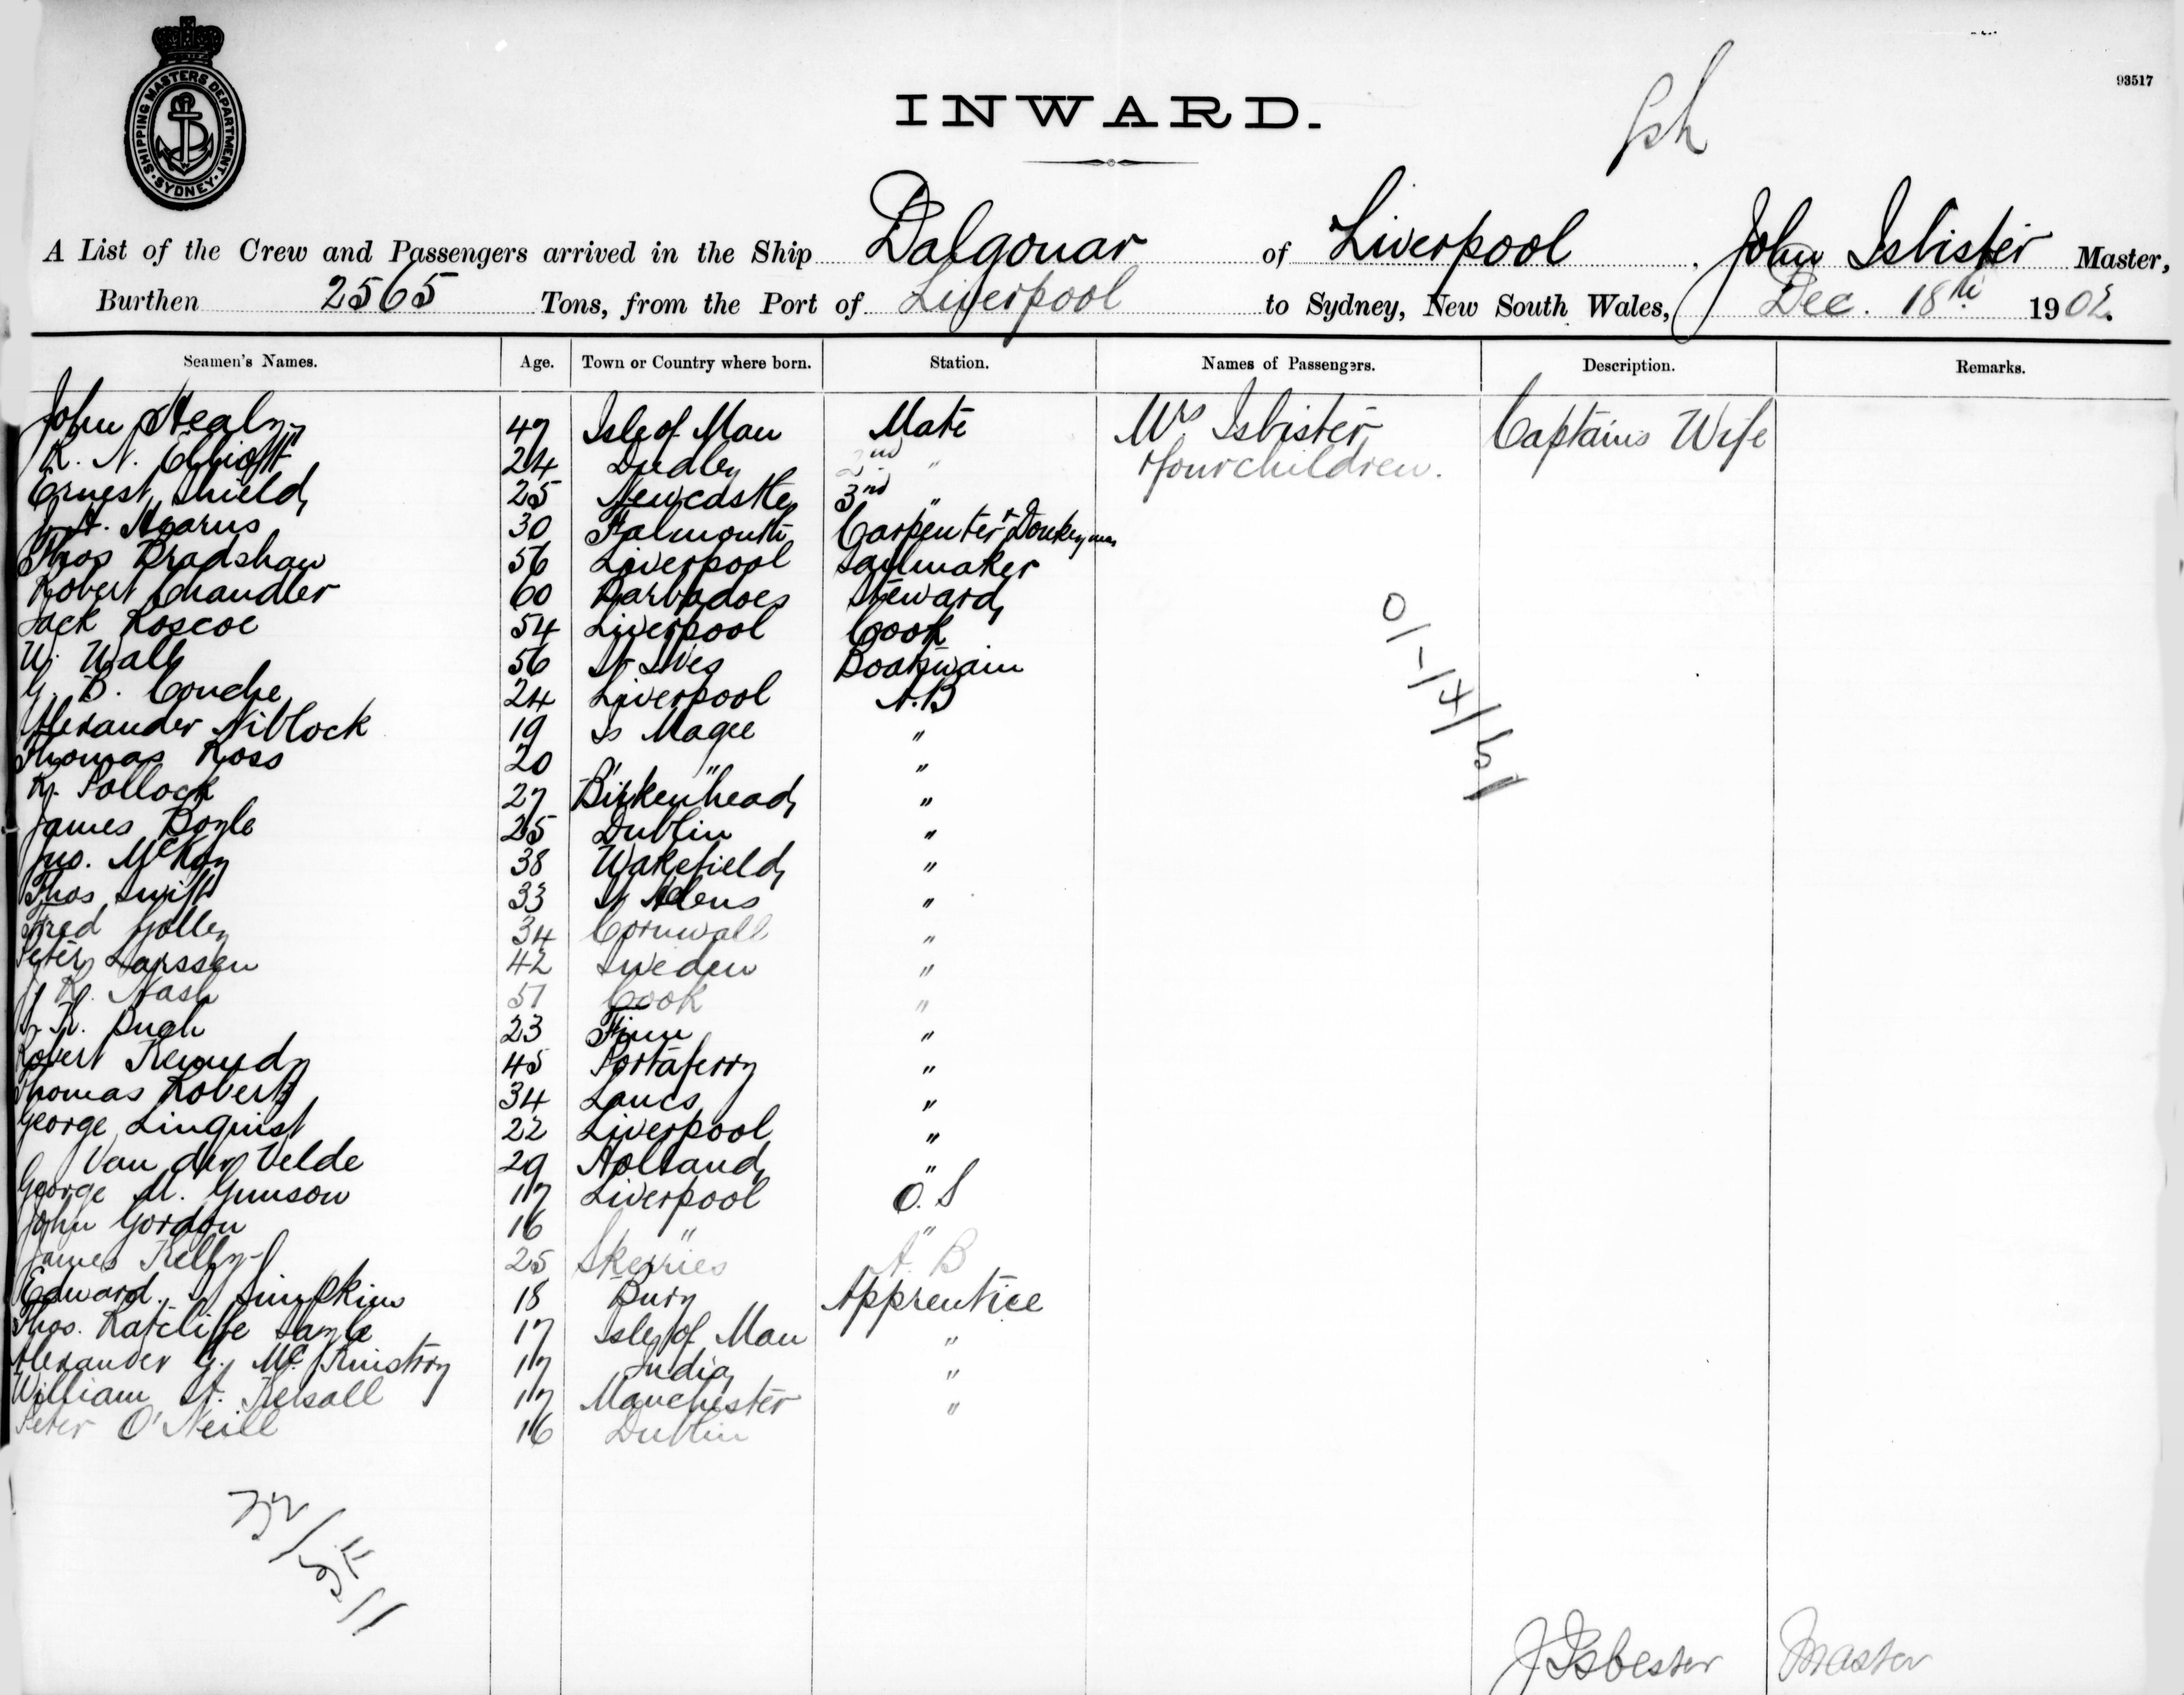 SHIPPING MASTERS DEPARTMENT. SYDNEY
93517
INWARD.
A List of the Crew and Passengers arrived in the Ship Dalgonar of Liverpool, John Isbister Master,
Burthen 2565 Tons, from the Port of Liverpool to Sydney, New South Wales, Dec. 18th 1902.
Seamen's Names. Age. Town or Country where born. Station. Names of Passengers. Description. Remarks.
John Healy 47 Isle of Man Mate Mrs Isbister Captains Wife
R. N. Elliott 24 Dudley 2nd " & four children.
Ernest Shield 25 Newcastle 3rd "
Hearns 30 Falmouth Carpenter & Donkeyman
Thos Bradshaw 56 Liverpool Sailmaker
Robert Chandler 60 Barbadoes Steward
Jack Roscoe 54 Liverpool Cook
W. Wall 56 St Ives Boatswain
G. B. Couche 24 Liverpool A.B
Alexander Niblock 19 Is Magee "
Thomas Ross 20 " " "
R. Pollock 27 Birkenhead "
James Boyle 25 Dublin "
Jno. McKay 38 Wakefield "
Thos Swift 33 St Helens "
Fred Golley 34 Cornwall "
Peter Larssen 42 Sweden "
Nash 51 Cook "
Pugh 23 Finn "
Robert Kennedy 45 Portaferry "
Thomas Roberts 34 Lancs "
George Linquist 22 Liverpool "
Van der Velde 29 Holland "
George M. Gunson 17 Liverpool O.S
John Gordon 16 " "
James Kelly 25 Skerries A.B
Edward Simpkin 18 Bury Apprentice
Thos. Ratcliffe Sayle 17 Isle of Man "
Alexander G. McKinstry 17 India "
William H. Kelsall 17 Manchester "
Peter O'Neill 16 Dublin
J Isbester Master